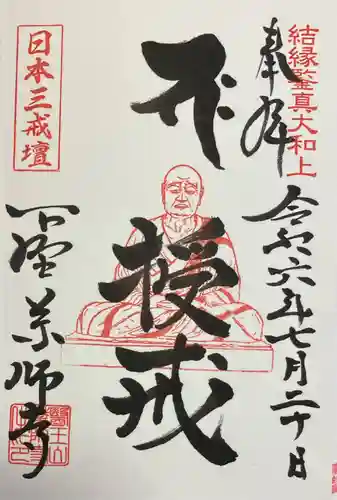 奉拝
結縁鑒真大和上
令和六年七月二十日
授戒
日本三戒壇
下野薬師寺